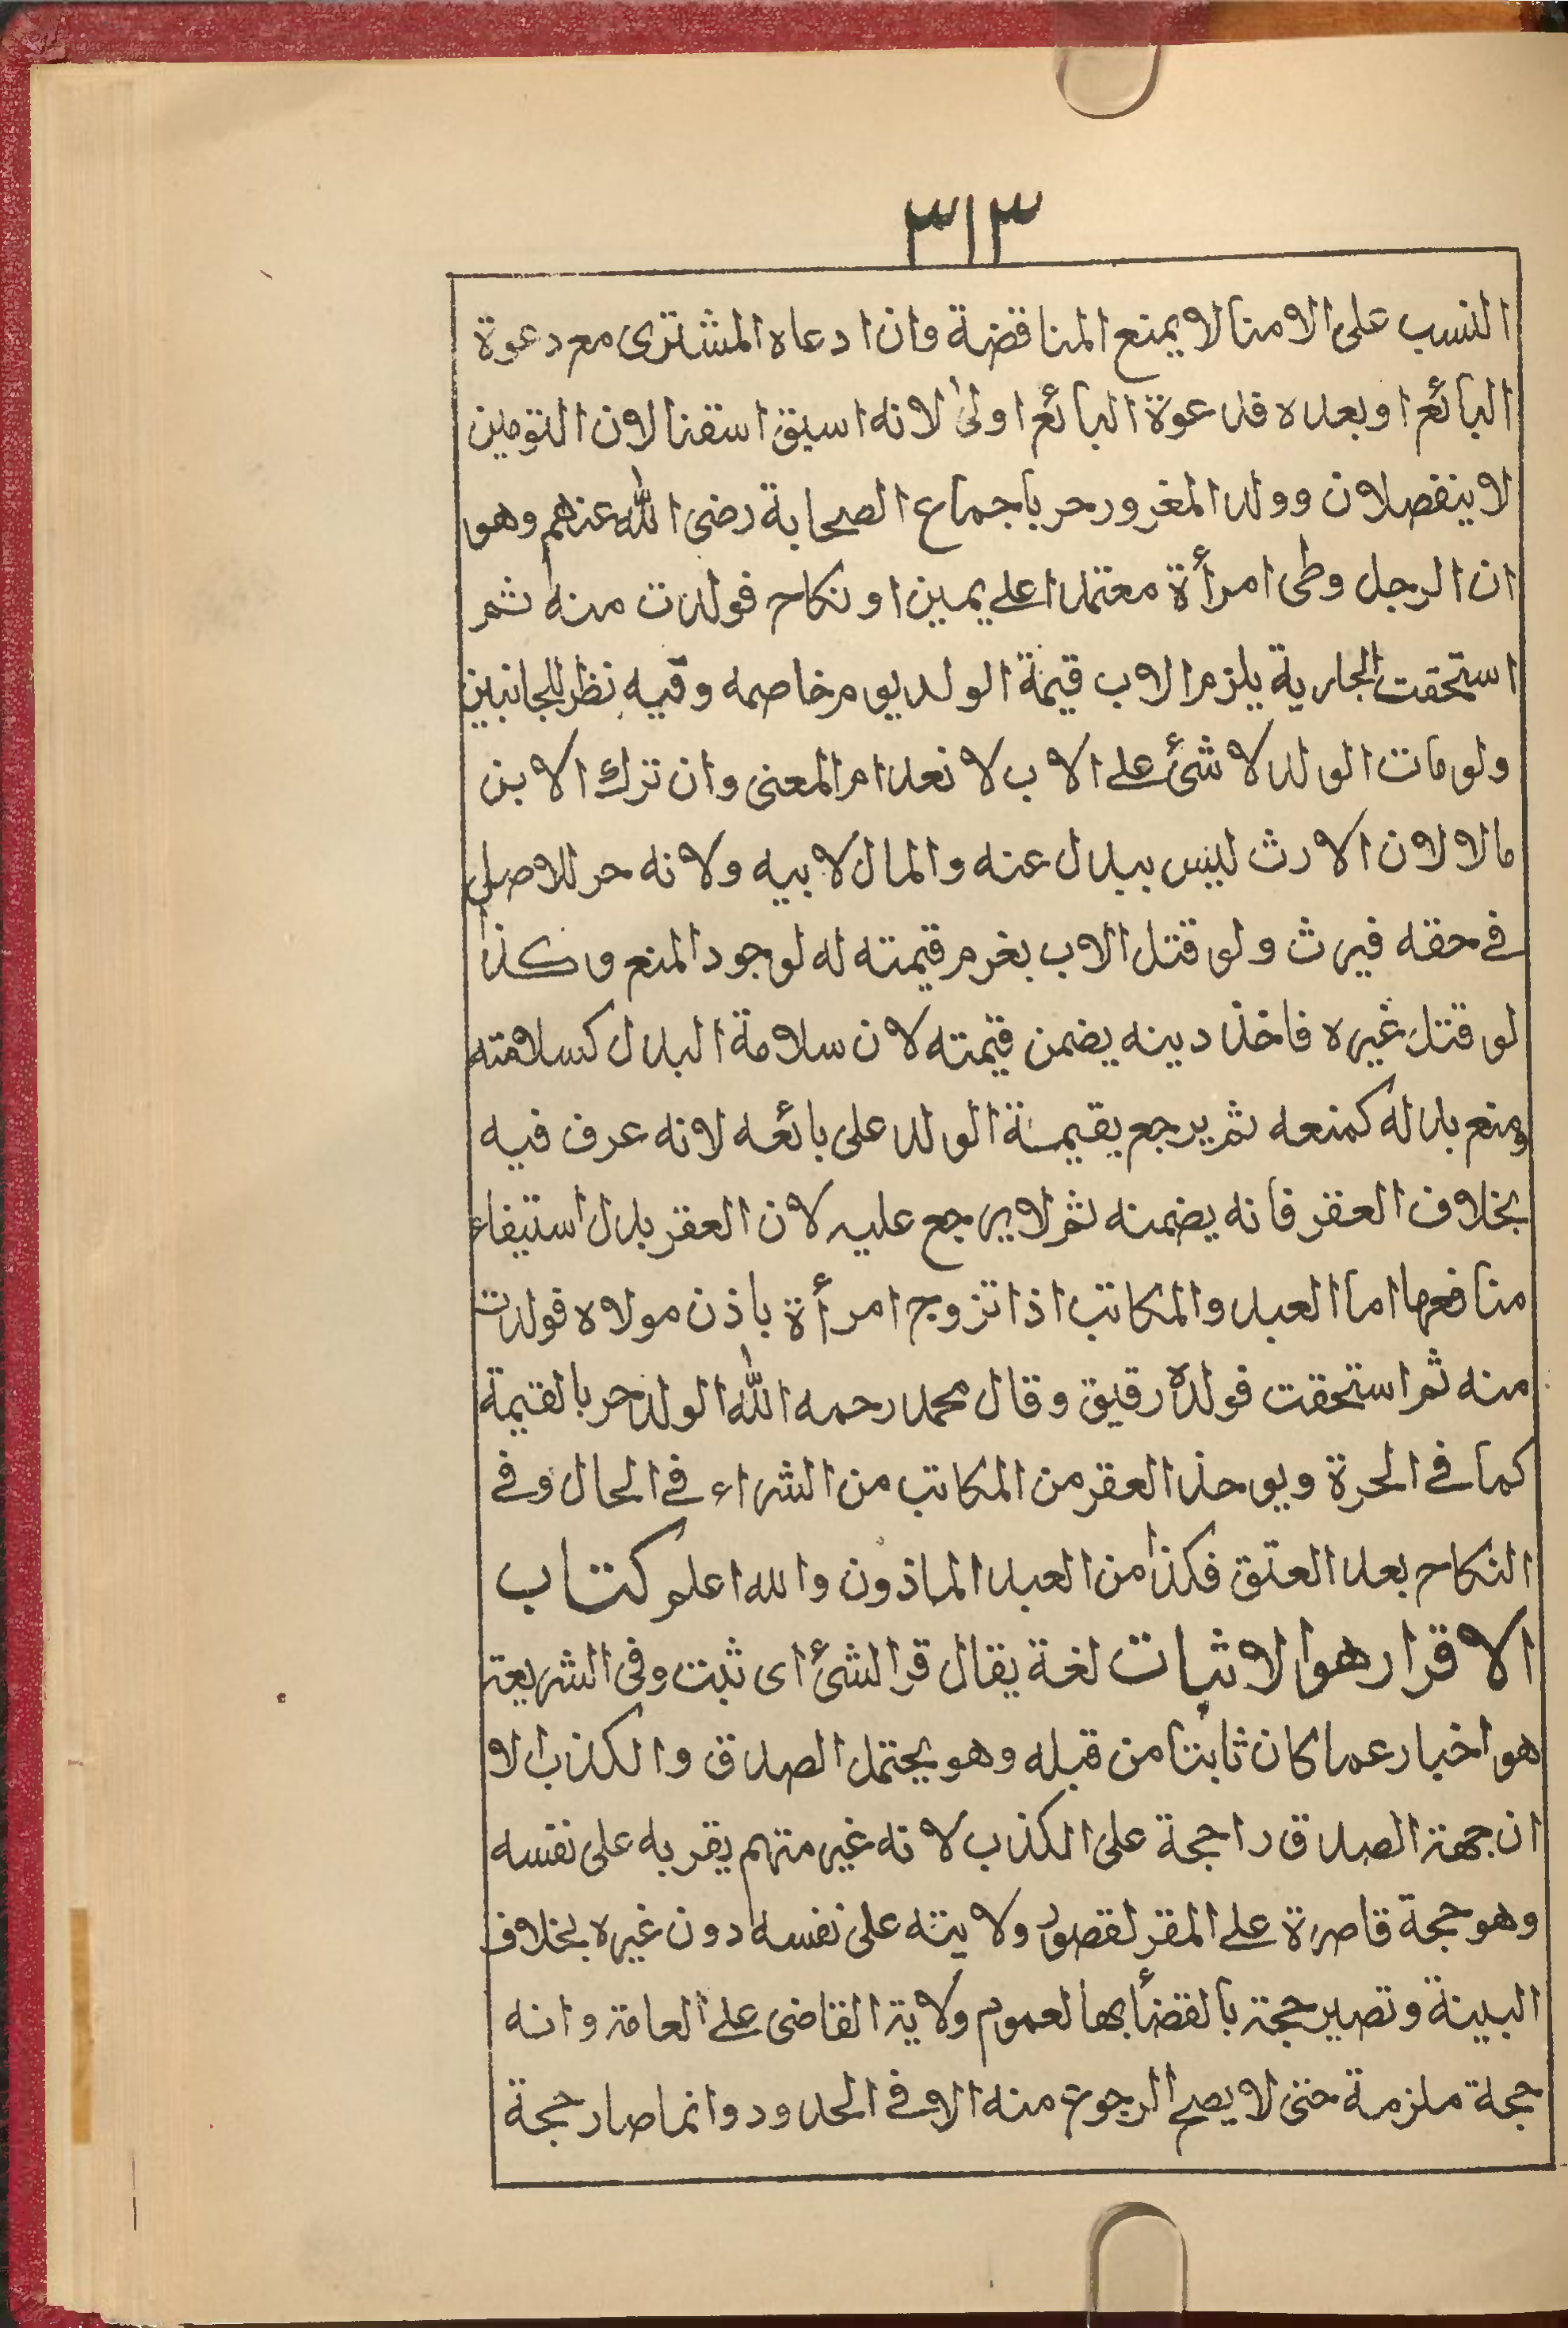 ٣١٣
النسب على الامنا لا يمنع المناقضة وان ادعاه المشترى مع دعوة
البائع او بعده فدعوة البائع اولى لانه اسبق اسقنا لان التومين
لا ينفصلان وولد المغرور حر باجماع الصحابة رضى الله عنهم وهو
ان الرجل وطى امرأة معتمدا على يمين او نكاح فولدت منه ثم
استحقت الجارية يلزم الاب قيمة الولد يوم خاصمه وفيه نظر للجانبين
ولو مات الولد لا شئ على الاب لانعدام المعنى وان ترك الابن
مالا لان الارث ليس ببدل عنه والمال لابيه ولانه حر للاصلى
فى حقه فيرث ولو قتل الاب بغرم قيمته له لوجود المنع وكذا
لو قتل غيره فاخذ دينه يضمن قيمته لان سلامة البدل كسلامته
ومنع بدله كمنعه ثم يرجع بقيمة الولد على بائعه لانه عرف فيه
بخلاف العقر فانه يضمنه ثم لا يرجع عليه لان العقر بدل استيفاء
منافعها اما العبد والمكاتب اذا تزوج امرأة باذن مولاه فولدت
منه ثم استحقت فولده رقيق وقال محمد رحمه الله الولد حر بالقيمة
كما فى الحرة ويوخذ العقر من المكاتب من الشراء فى الحال وفى
النكاح بعد العتق فكذا من العبد الماذون والله اعلم كتاب
الاقرار هو الاثبات لغة يقال قر الشئ اى ثبت وفى الشريعة
هو اخبار عما كان ثابتا من قبله وهو يحتمل الصدق والكذب الا
ان جهة الصدق راجحة على الكذب لانه غير متهم يقر به على نفسه
وهو حجة قاصرة على المقر لقصور ولايته على نفسه دون غيره بخلاف
البينة وتصير حجة بالقضأ بها لعموم ولاية القاضى على العامة وانه
حجة ملزمة حتى لا يصح الرجوع منه الا فى الحدود وانما صار حجة